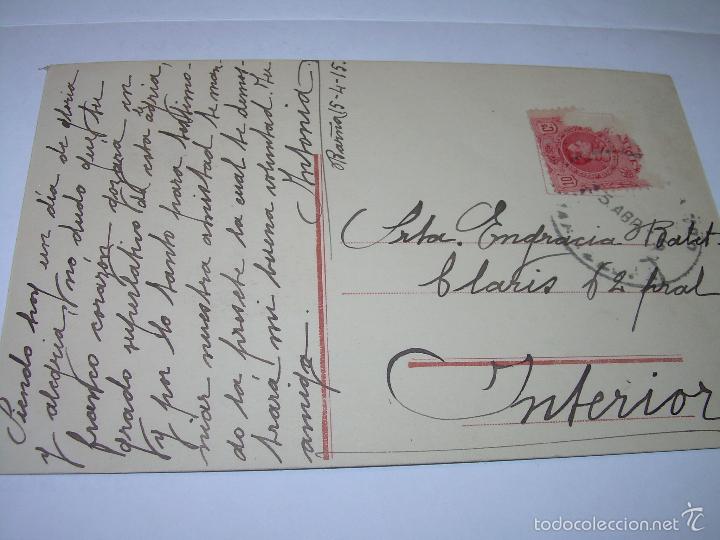 Siendo hoy un día de gloria
y alegria, y no dudo que tu
franco corazón goza en
grado superlativo de esta alegria,
y por lo tanto para testimo-
niar nuestra amistad te man-
do la presete la cual te demos-
trará mi buena voluntad. Tu
amiga Antonia.
Barna 15-4-15.
10 Cs
5 ABR
Srta. Engracia Batet.
Claris 62 pral
Interior
todocoleccion.net